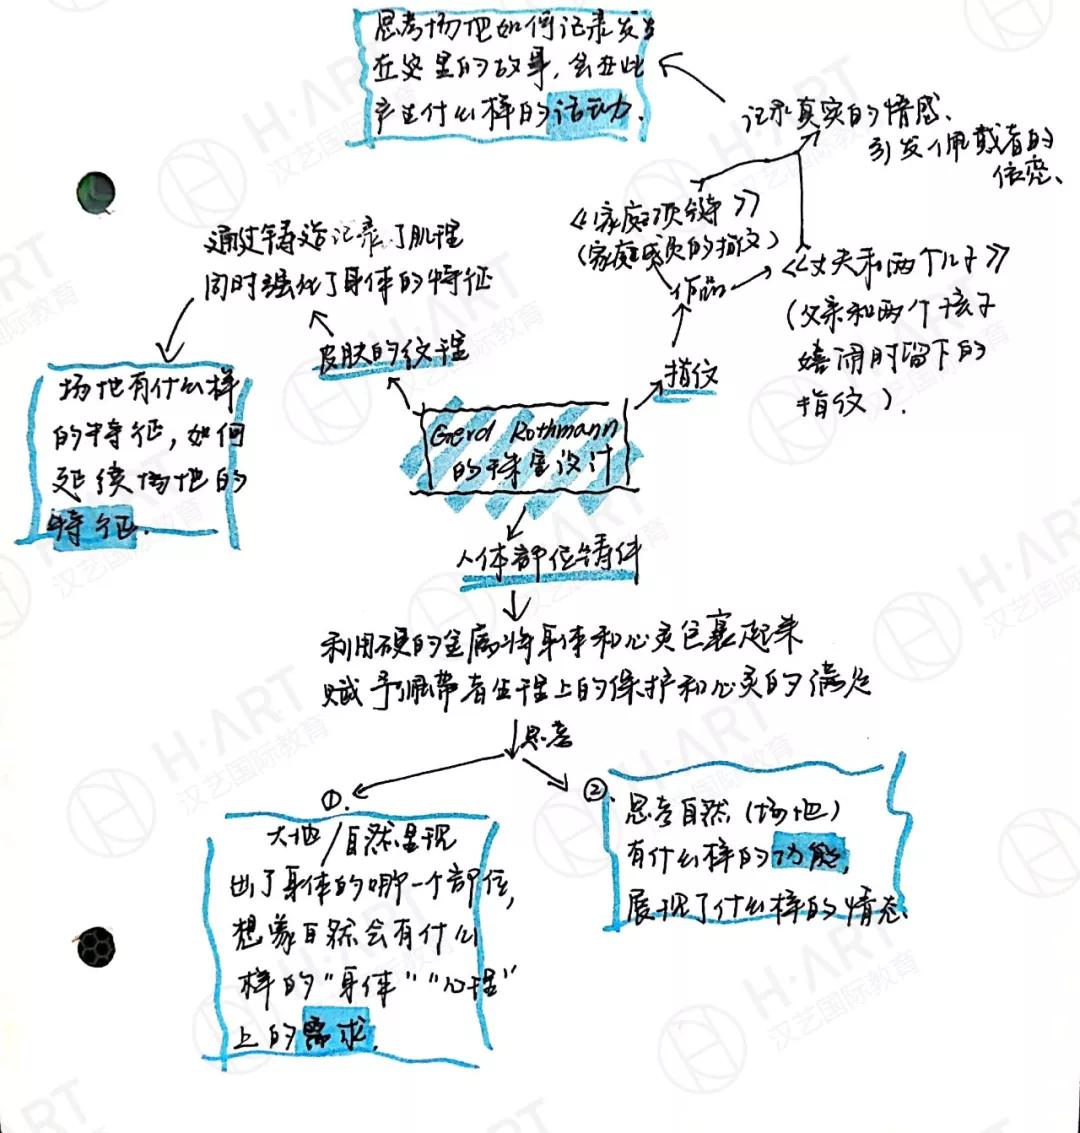 思考场地如何记录发生
在这里的故事,会在此
产生什么样的活动.
记录真实的情感、
引发佩戴者的
依恋、
《家庭项链》
(家庭成员的指纹)
作品
《丈夫和两个儿子》
(父亲和两个孩子
嬉闹时留下的
指纹).
指纹
通过铸造记录了肌理
同时强化了身体的特征
皮肤的纹理
场地有什么样
的特征,如何
延续场地的
特征.
Gerd Rothmann
的珠宝设计
人体部位铸件
利用硬的金属将身体和心灵包裹起来
赋予佩带者生理上的保护和心灵的满足
思考
①.
大地/自然呈现
出了身体的哪一个部位,
想象自然会有什么
样的"身体""心理"
上的需求.
②
思考自然(场地)
有什么样的功能,
展现了什么样的情态、
H·ART
汉艺国际教育